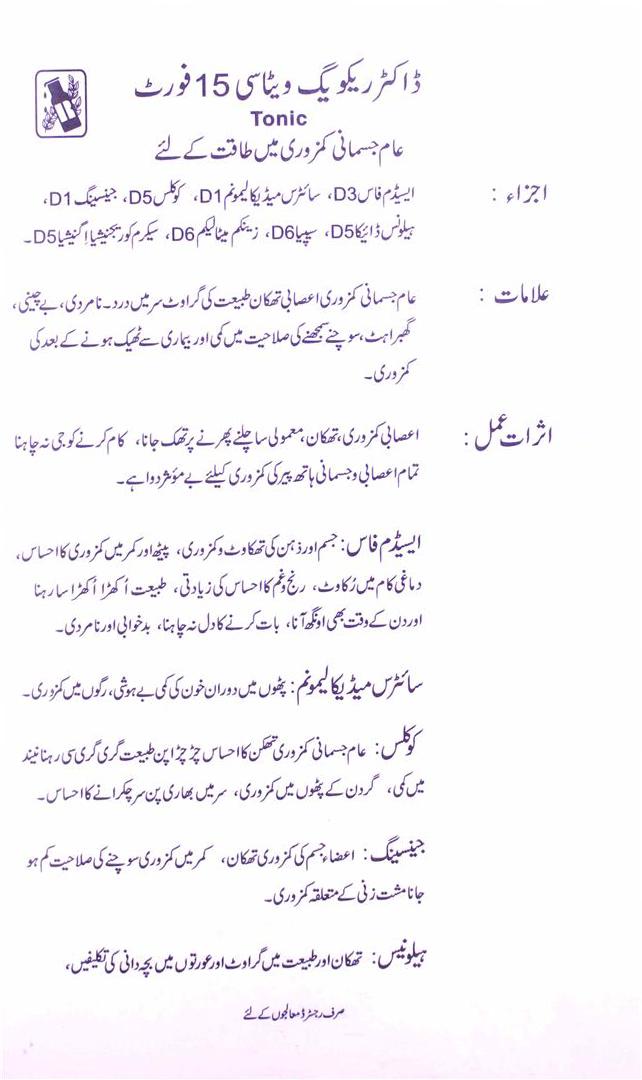 ڈاکٹر ریکویگ ویٹاسی 15 فورٹ
Tonic
عام جسمانی کمزوری میں طاقت کے لئے
اجزاء : ایسڈم فاس D3، سائٹرس میڈیکا لیمونم D1، کوکلس D5، جینسینگ D1،
ہیلونس ڈائیکا D5، سیپیا D6، زینکم میٹالیکم D6، سیکرم کوریجنیشیا اِگنیشیا D5۔
علامات : عام جسمانی کمزوری اعصابی تھکان طبیعت کی گراوٹ سر میں درد۔ نامردی، بے چینی،
گھبراہٹ، سوچنے سمجھنے کی صلاحیت میں کمی اور بیماری سے ٹھیک ہونے کے بعد کی
کمزوری۔
اثرات عمل : اعصابی کمزوری، تھکان، معمولی سا چلنے پھرنے پر تھک جانا، کام کرنے کو جی نہ چاہنا
تمام اعصابی و جسمانی ہاتھ پیر کی کمزوری کیلئے بے مؤثر دوا ہے۔
ایسڈم فاس: جسم اور ذہن کی تھکاوٹ و کمزوری، پیٹھ اور کمر میں کمزوری کا احساس،
دماغی کام میں رُکاوٹ، رنج و غم کا احساس کی زیادتی، طبیعت اُکھڑا اُکھڑا سا رہنا
اور دن کے وقت بھی اونگھ آنا، بات کرنے کا دل نہ چاہنا، بدخوابی اور نامردی۔
سائٹرس میڈیکا لیمونم: پٹھوں میں دوران خون کی کمی بے ہوشی، رگوں میں کمزوری۔
کوکلس: عام جسمانی کمزوری تھکن کا احساس چڑچڑاپن طبیعت گری گری سی رہنا نیند
میں کمی، گردن کے پٹھوں میں کمزوری، سر میں بھاری پن سر چکرانے کا احساس۔
جینسینگ: اعضاء جسم کی کمزوری تھکان، کمر میں کمزوری سوچنے کی صلاحیت کم ہو
جانا مشت زنی کے متعلقہ کمزوری۔
ہیلونیس: تھکان اور طبیعت میں گراوٹ اور عورتوں میں بچہ دانی کی تکلیفیں،
صرف رجسٹرڈ معالجوں کے لئے